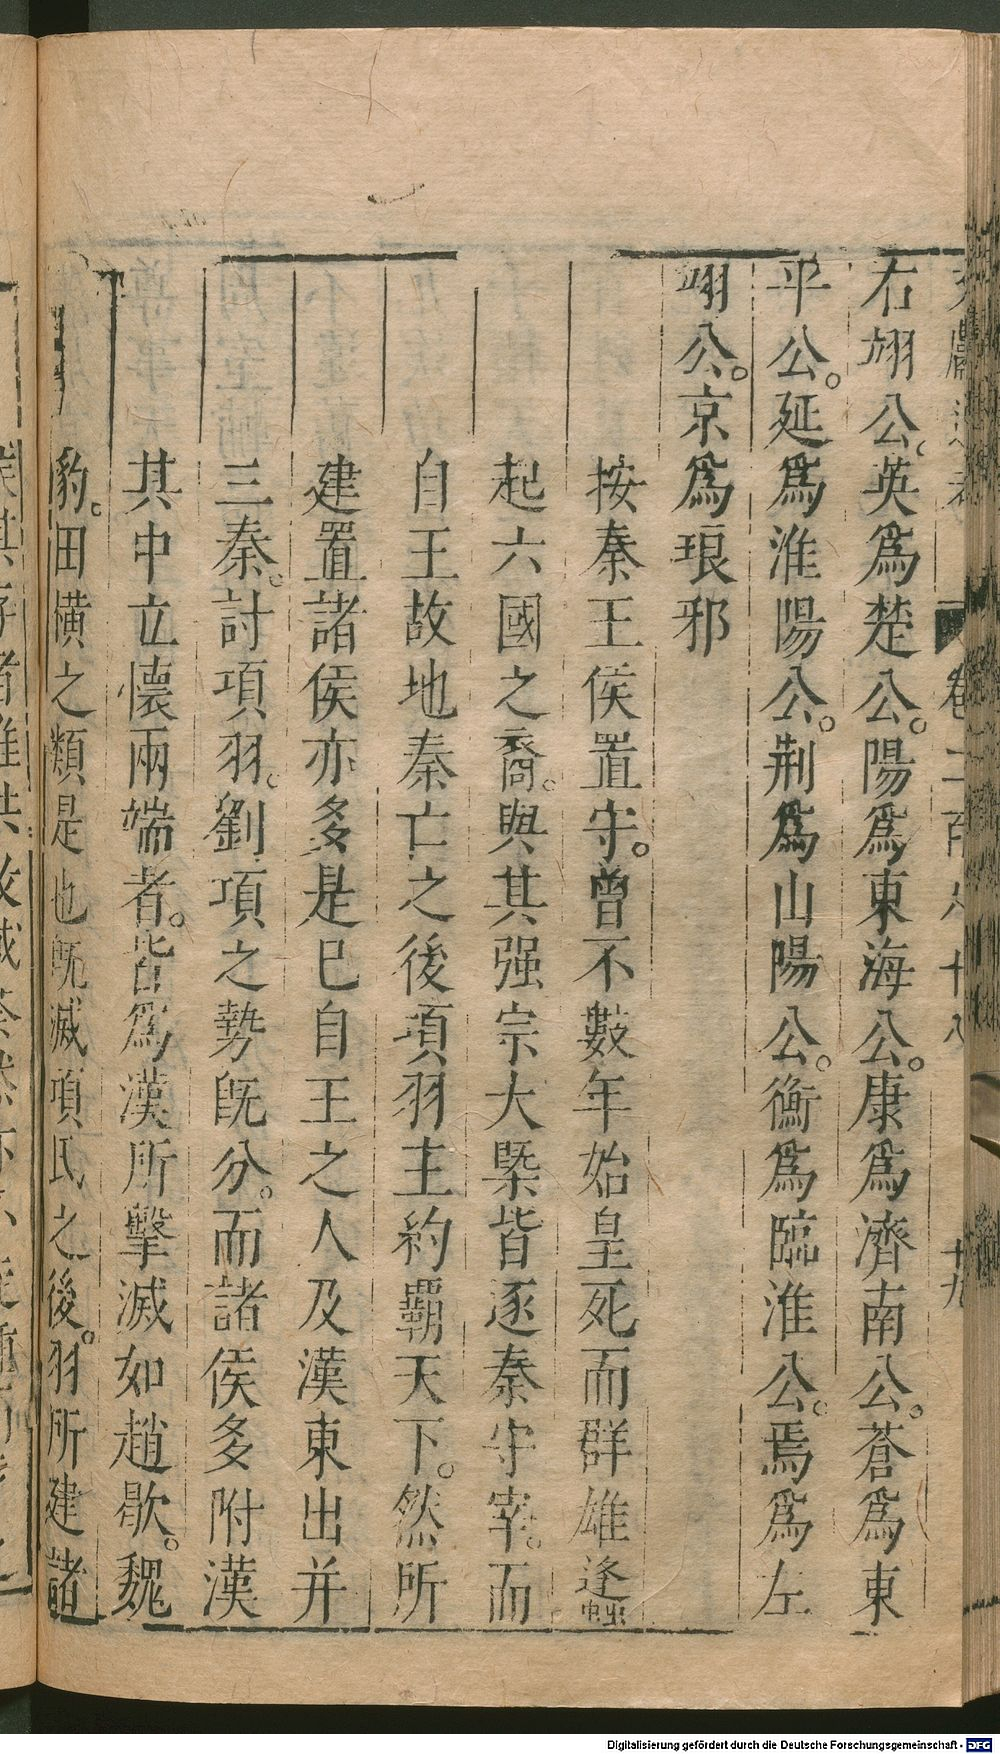 右翊公。英爲楚公。陽爲東海公。康爲濟南公。蒼爲東
平公。延爲淮陽公。荆爲山陽公。衡爲臨淮公。焉爲左
翊公。京爲琅邪
按秦王侯置守。曾不數年始皇死而群雄逢蝟
起六國之裔。與其强宗大槩皆逐秦守宰。而
自王故地秦亡之後項羽主約覇天下。然所
建置諸侯亦多是巳自王之人及漢東出并
三秦。討項羽。劉項之勢既分。而諸侯多附漢
其中立懷兩端者。皆爲漢所擊滅如趙歇。魏
豹。田橫之類是也既滅項氏之後。羽所建諸
卷二百六十八
十九
Digitalisierung gefördert durch die Deutsche Forschungsgemeinschaft - DFG